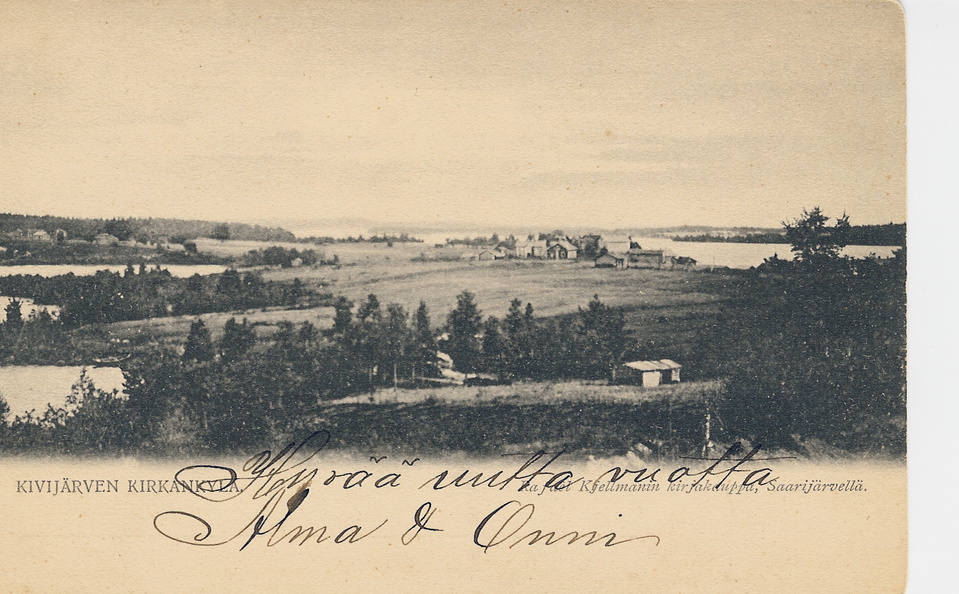 KIVIJÄRVEN KIRKANKYLÄ.
Rafael Kjellmanin kirjakauppa, Saarijärvellä.
Hyvää uutta vuotta
Alma & Onni